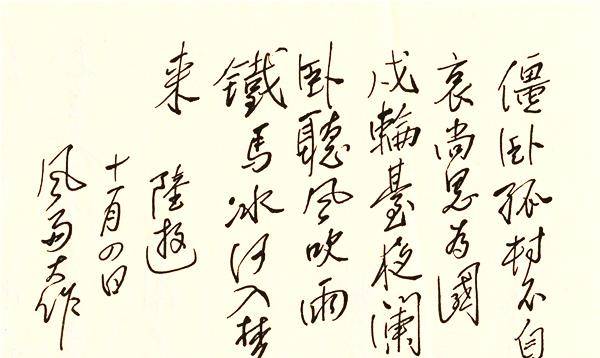 僵卧孤村不自
哀尚思為國
戍輪臺夜闌
卧聽風吹雨
鐵馬冰河入夢
來 陸游
十一月四日
風雨大作